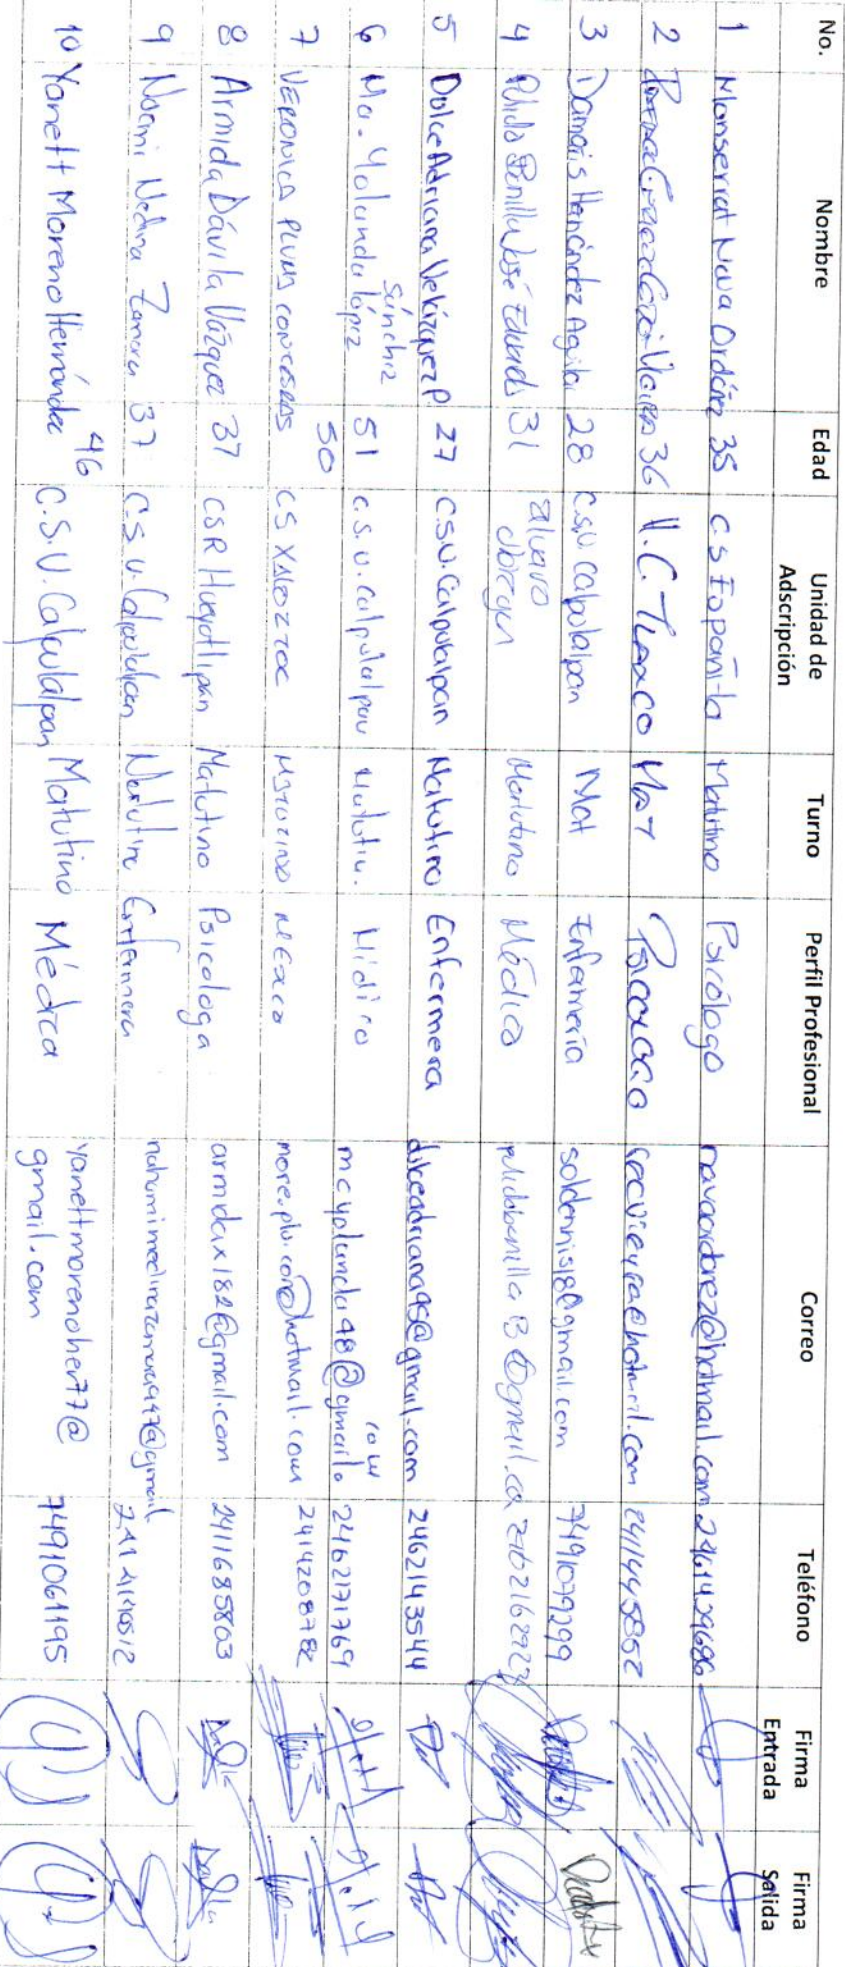 No. Nombre Edad Unidad de Adscripción Turno Perfil Profesional Correo Teléfono Firma Entrada Firma Salida
1 Monserrat Nava Ordóñez 35 C.S Españita Matutino Psicólogo navaordonez@hotmail.com 2461439686
2 36 H.C. Tlaxco Mat Psicologo
3 Damaris Hernández Aguilar 28 C.S.U. Calpulalpan Mat Enfermería soldennis18@gmail.com 7491079299
4 Pulido Bonilla José Eduardo 31 Alvaro Obregon Matutino Médico
5 Dulce Adriana Velázquez P 27 C.S.U. Calpulalpan Matutino Enfermera dulceadriana95@gmail.com 2462143544
6 Ma. Yolanda Sánchez López 51 C.S.U. Calpulalpan Matutin. Médico mcyolanda48@gmail.com 2462171769
7 VERONICA PLUMAS CONTRERAS 50 CS XALOZTOC MATUTINO MEDICO more.plu.con@hotmail.com 2414208782
8 Armida Dávila Vázquez 37 CSR Hueyotlipan Matutino Psicologa armidax182@gmail.com 2411685803
9 Noemi Medina Zamora 37 C.S.U. Calpulalpan Matutino Enfermera
10 Yanett Moreno Hernández 46 C.S.U. Calpulalpan Matutino Médica yanettmorenoher77@gmail.com 7491061195